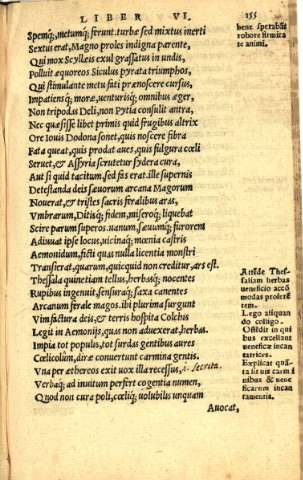 LIBER VI. 155
Spemq́;, metumq́; ferunt. turbæ sed mixtus inerti
Sextus erat, Magno proles indigna parente,
Qui mox Scyllæis exul grassatus in undis,
Polluit æquoreos Siculus pyrata triumphos,
Qui stimulante metu fati prænoscere cursus,
Impatiensq́; moræ, venturisq́; omnibus æger,
Non tripodas Deli, non Pythia consulit antra,
Nec quæsisse libet primis quid frugibus altrix
Ore Iouis Dodona sonet, quis noscere fibra
Fata queat, quis prodat aues, quis fulgura cœli
Seruet, & Assyria scrutetur sydera cura,
Aut si quid tacitum, sed fas erat. ille supernis
Detestanda deis sæuorum arcana Magorum
Nouerat, & tristes sacris feralibus aras,
Vmbrarum, Ditisq́; fidem, miseroq́; liquebat
Scire parum superos. uanum, sæuumq́; furorem
Adiuuat ipse locus, uicinaq́; mœnia castris
Aemonidum, ficti quas nulla licentia monstri
Transierat, quarum, quicquid non creditur, ars est.
Thessala quinetiam tellus, herbasq́; nocentes
Rupibus ingenuit, sensuraq́; saxa canentes
Arcanum ferale magos. ibi plurima surgunt
Vim factura deis, & terris hospita Colchis
Legit in Aemonijs, quas non aduexerat, herbas.
Impia tot populis, tot surdas gentibus aures
Cœlicolûm, diræ conuertunt carmina gentis.
Vna per æthereos exit uox illa recessus,
Verbaq́; ad inuitum perfert cogentia numen,
Quod non cura poli, cœliq́; uolubilis unquam
Auocat,
bene sperabãt
robore firmita
te animi.
A sede Thes-
saliam herbas
ueneficio acco
modas proferẽ
tem.
Lego aliquan
do colligo.
Ostẽdit in qui
bus excellant
ueneficæ incan
tatrices.
Explicat quã-
ta sit uis carmi
nibus & uene
ficarum incan
tamentis.